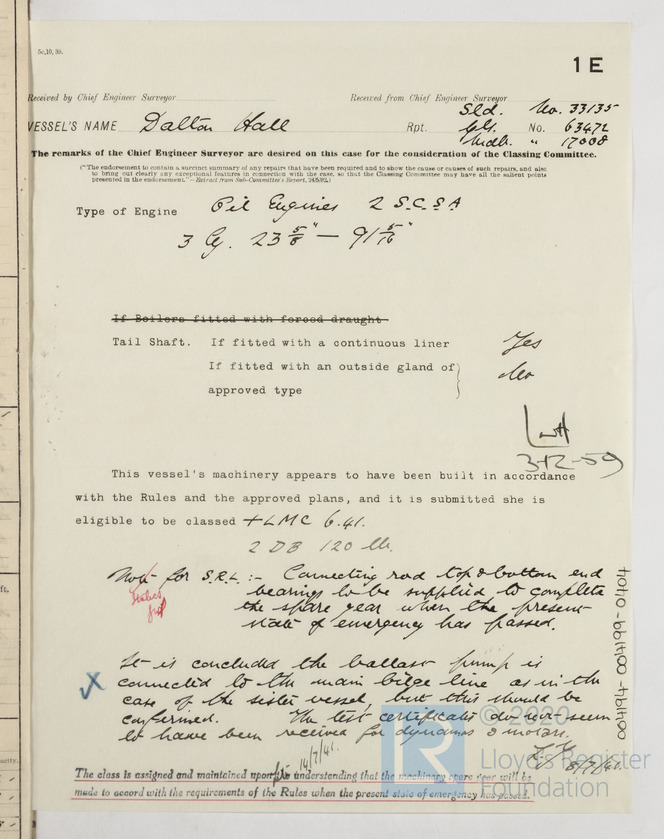 5c,10,39.
1E
Received by Chief Engineer Surveyor
Received from Chief Engineer Surveyor
VESSEL'S NAME Dalton Hall
Rpt. Sld. No. 33135
Gls. No. 63472
Mdb. " 17008
The remarks of the Chief Engineer Surveyor are desired on this case for the consideration of the Classing Committee.
("The endorsement to contain a succinct summary of any repairs that have been required and to show the cause or causes of such repairs, and also
to bring out clearly any exceptional features in connection with the case, so that the Classing Committee may have all the salient points
presented in the endorsement."—Extract from Sub-Committee's Report, 24/5/92.)
Type of Engine Oil Engines 2 S.C.S.A
3 Cy. 23 5/8" — 91 5/16"
If Boilers fitted with forced draught
Tail Shaft. If fitted with a continuous liner Yes
If fitted with an outside gland of} No
approved type
3-12-59
This vessel's machinery appears to have been built in accordance
with the Rules and the approved plans, and it is submitted she is
eligible to be classed +LMC 6.41.
2 DB 120 lb.
Note for S.R.L. :- Connecting rod top & bottom end
bearings to be supplied to complete
the spare gear when the present
state of emergency has passed.
It is concluded the ballast pump is
connected to the main bilge line as in the
case of the sister vessel, but this should be
confirmed. The test certificates do not seem
to have been received for dynamos & motors.
8/7/41.
14/7/41.
The class is assigned and maintained upon the understanding that the machinery spare gear will be
made to accord with the requirements of the Rules when the present state of emergency has passed.
004194-004199-0404
© 2020
Lloyd's Register
Foundation